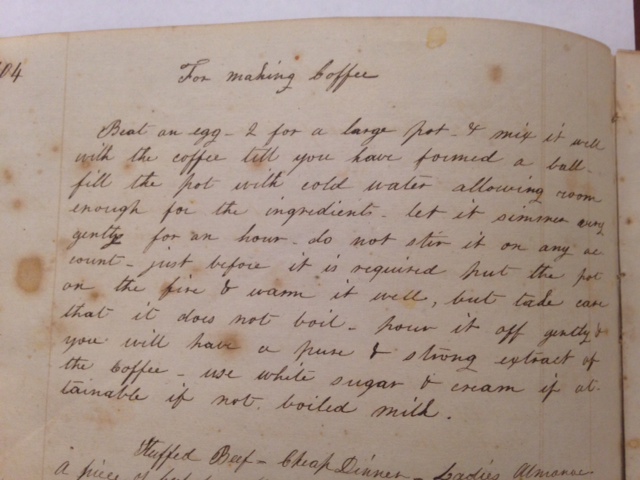 04
For making Coffee
Beat an egg - 2 for a large pot - & mix it well
with the coffee till you have formed a ball -
fill the pot with cold water allowing room
enough for the ingredients - let it simmer very
gently for an hour - do not stir it on any ac
count - just before it is required put the pot
on the fire & warm it well, but take care
that it does not boil - pour it off gently &
you will have a pure & strong extract of
the Coffee - use white sugar & cream if at-
tainable if not, boiled milk.
Stuffed Beef - Cheap Dinner - Ladies Almanac
A piece of